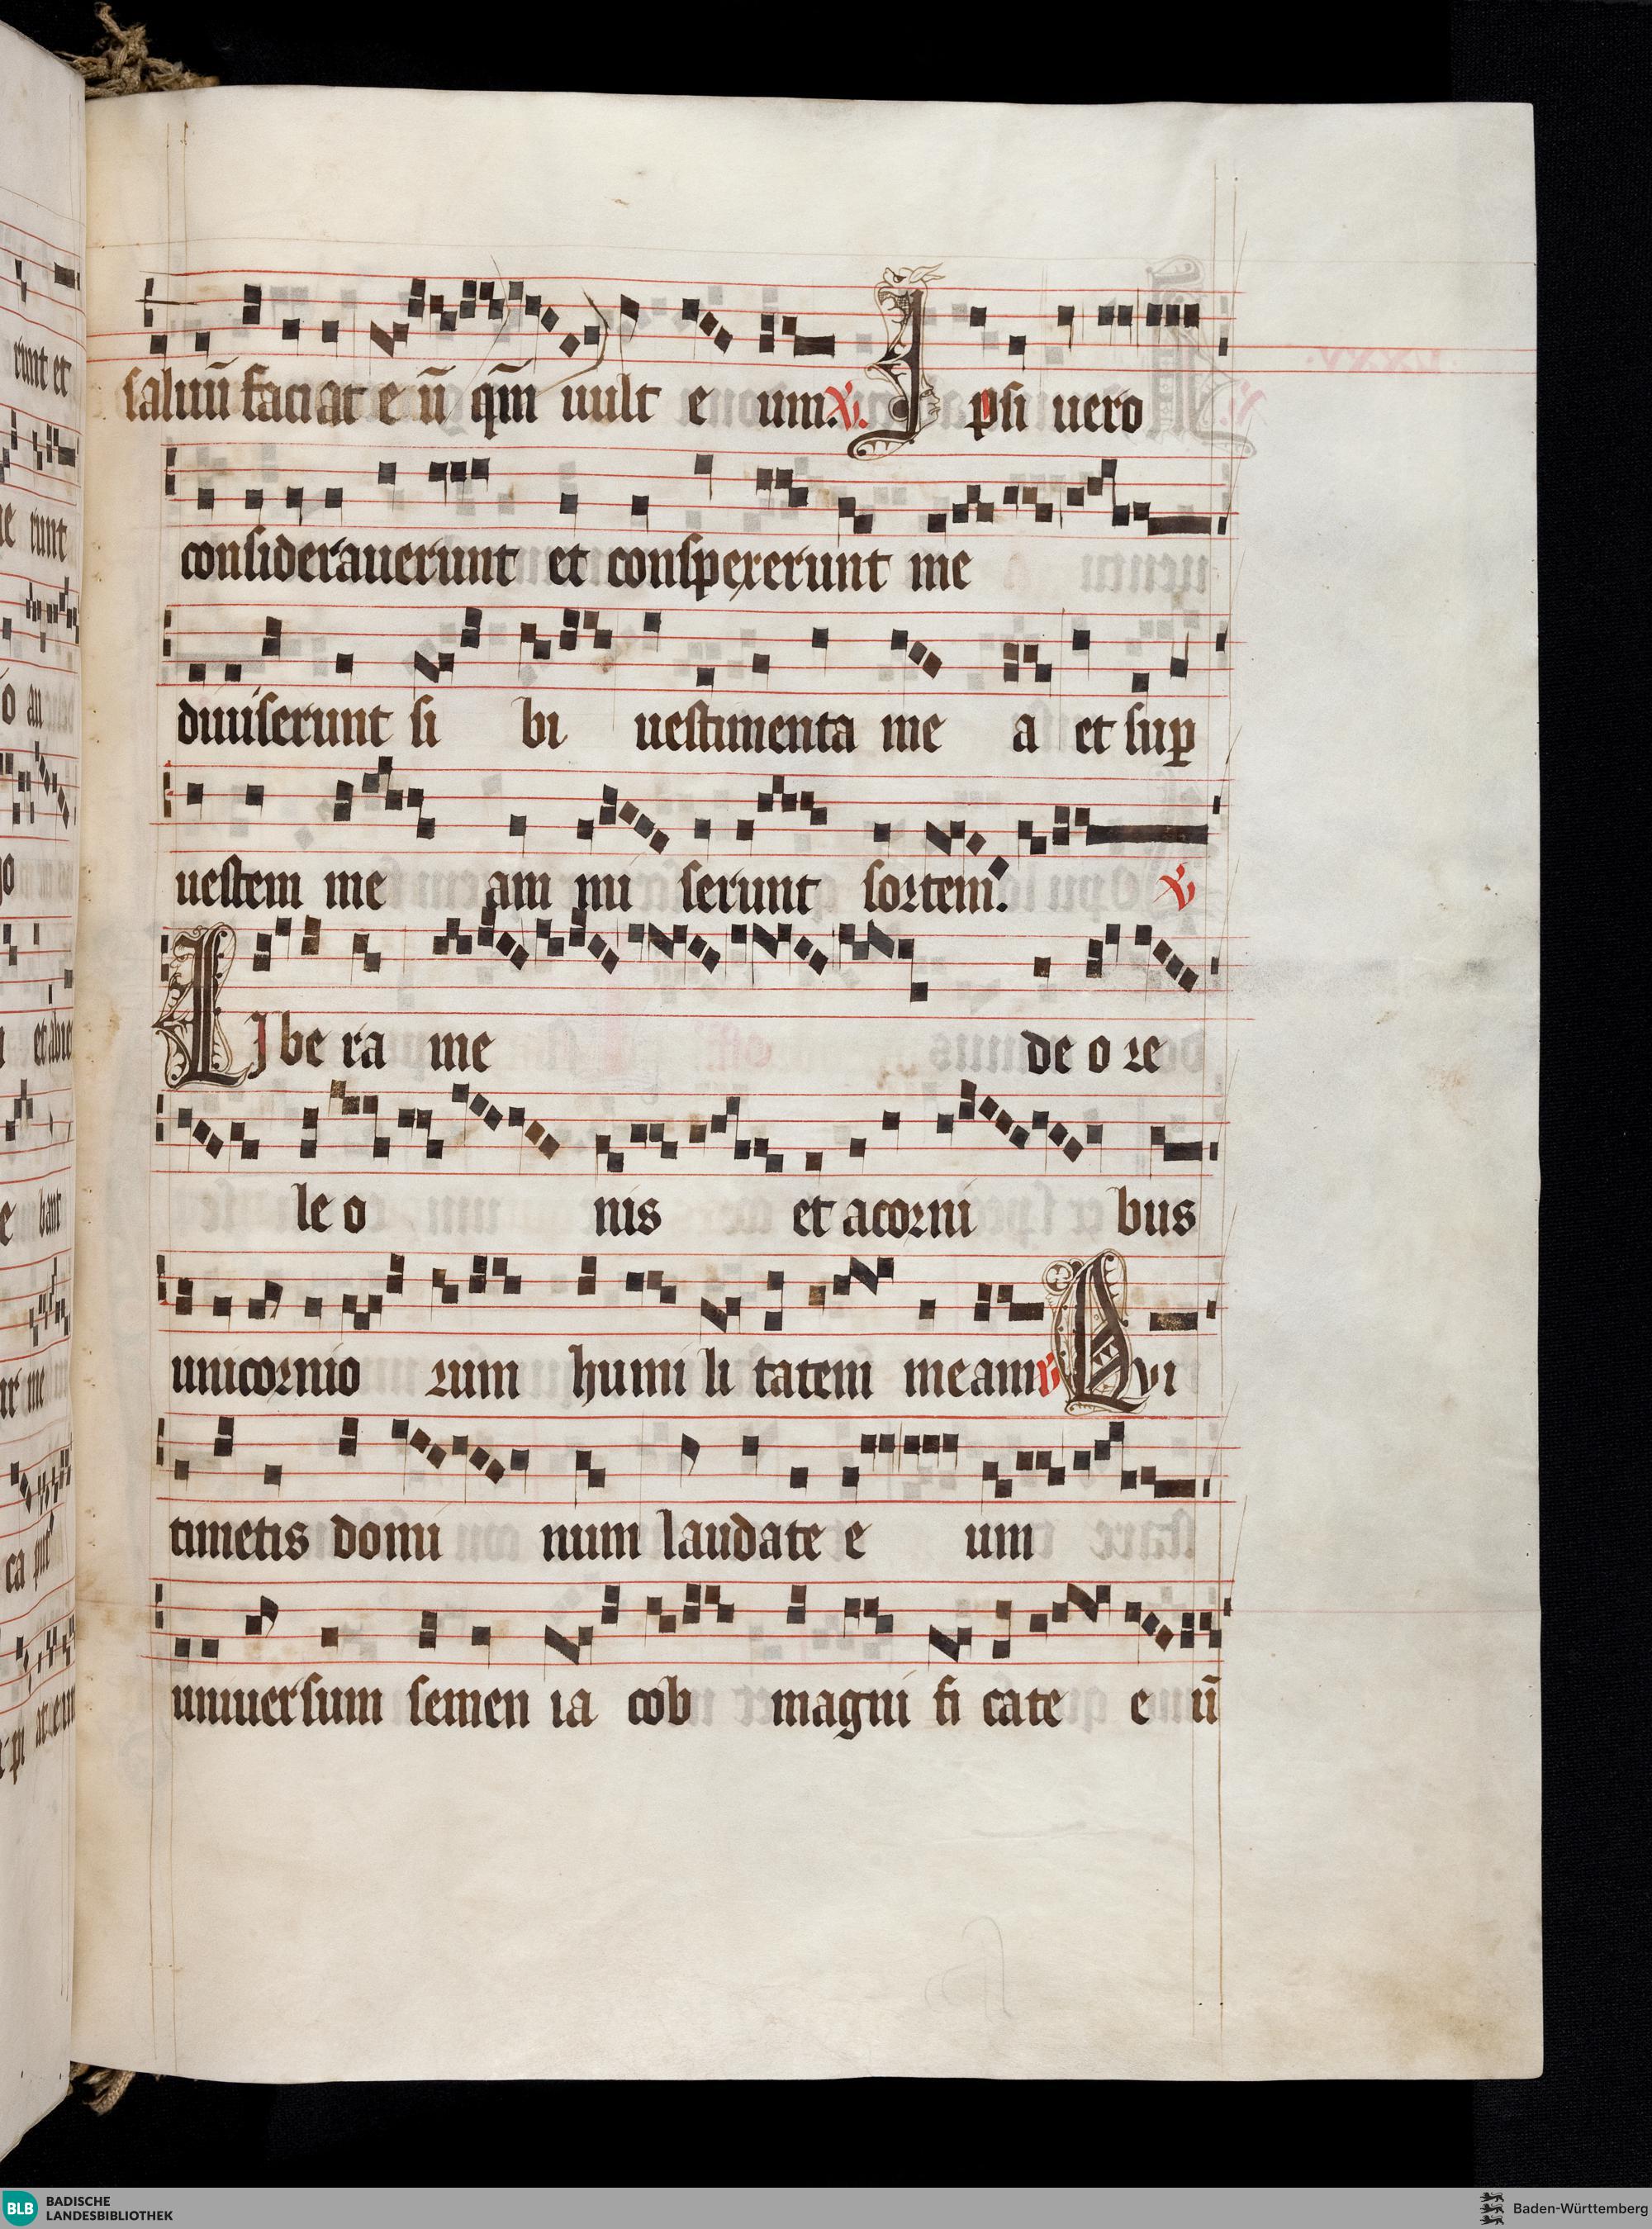 saluū faciat e ū qm̄ uult e um. v. I psi uero
considerauerunt et conspexerunt me
diuiserunt si bi uestimenta me a et sup
uestem me am mi serunt sortem. v
L I be ra me de o re
le o nis et a corni bus
unicornio rum humi li tatem meam v Q vi
timetis domi num laudate e um
uniuersum semen ia cob magni fi cate e ū
BLB BADISCHE LANDESBIBLIOTHEK
Baden-Württemberg